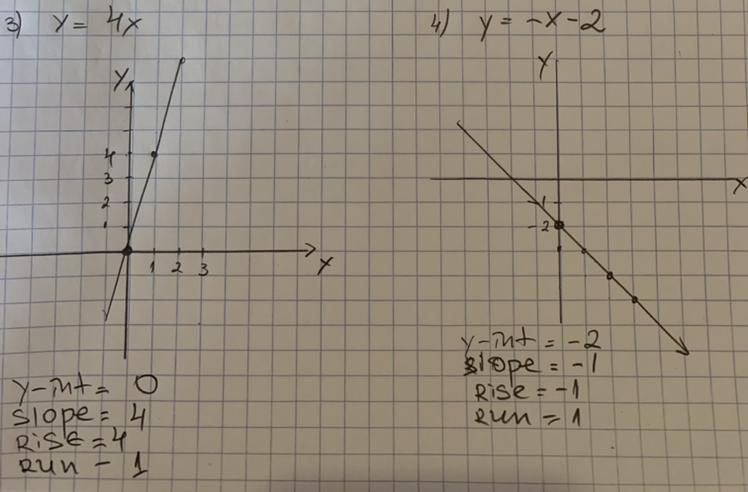 3) y = 4x
y
4
3
2
1
1 2 3
x
y-int = 0
slope = 4
Rise = 4
Run - 1
4) y = -x-2
y
x
-1
-2
y-int = -2
slope = -1
Rise = -1
Run = 1